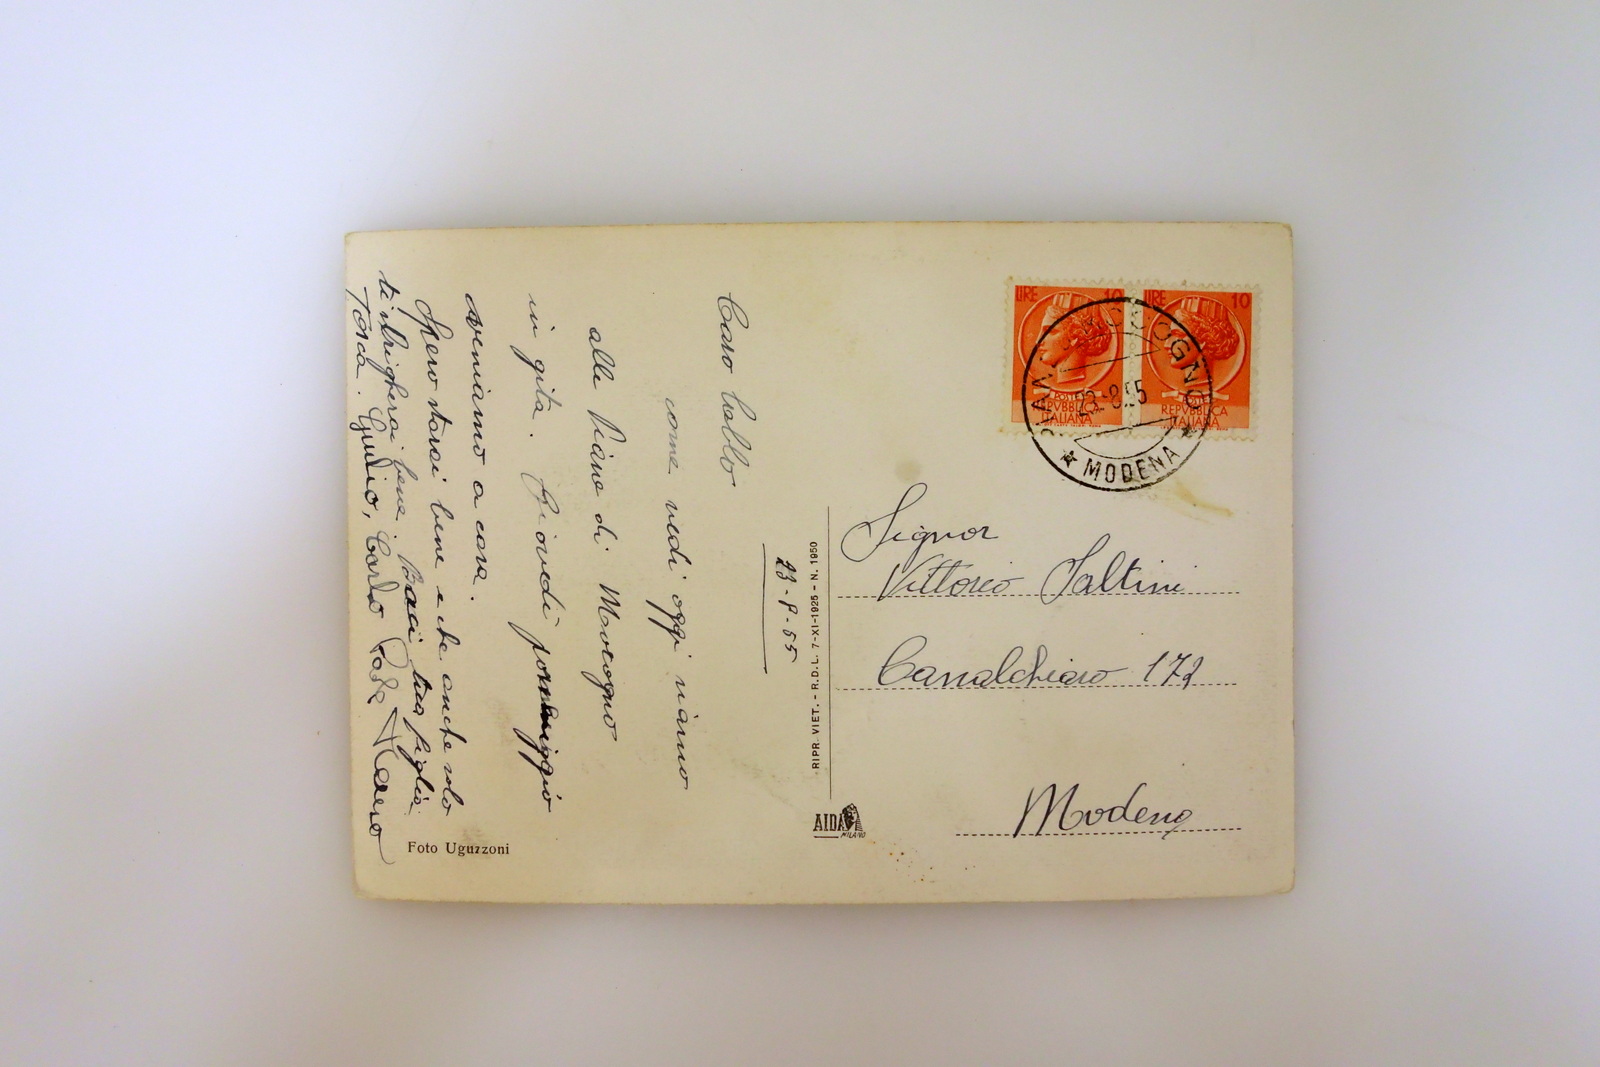 23-8-55
Caro babbo
come vedi oggi siamo
alle Piane di Mocogno
in gita. Giovedì pomeriggio
veniamo a casa.
Spero starai bene e che anche solo
ti sbrigherai bene. Baci tua figlia
Tosca. Giulio, Carlo
Foto Uguzzoni
RIPR. VIET. - R.D.L. 7-XI-1925 - N. 1950
AIDA
MILANO
LIRE 10
POSTE
REPVBBLICA
ITALIANA
LIRE 10
POSTE
REPVBBLICA
ITALIANA
MOCOGNO
23-8-55
MODENA
Signor
Vittorio Saltini
Canalchiaro 172
Modena